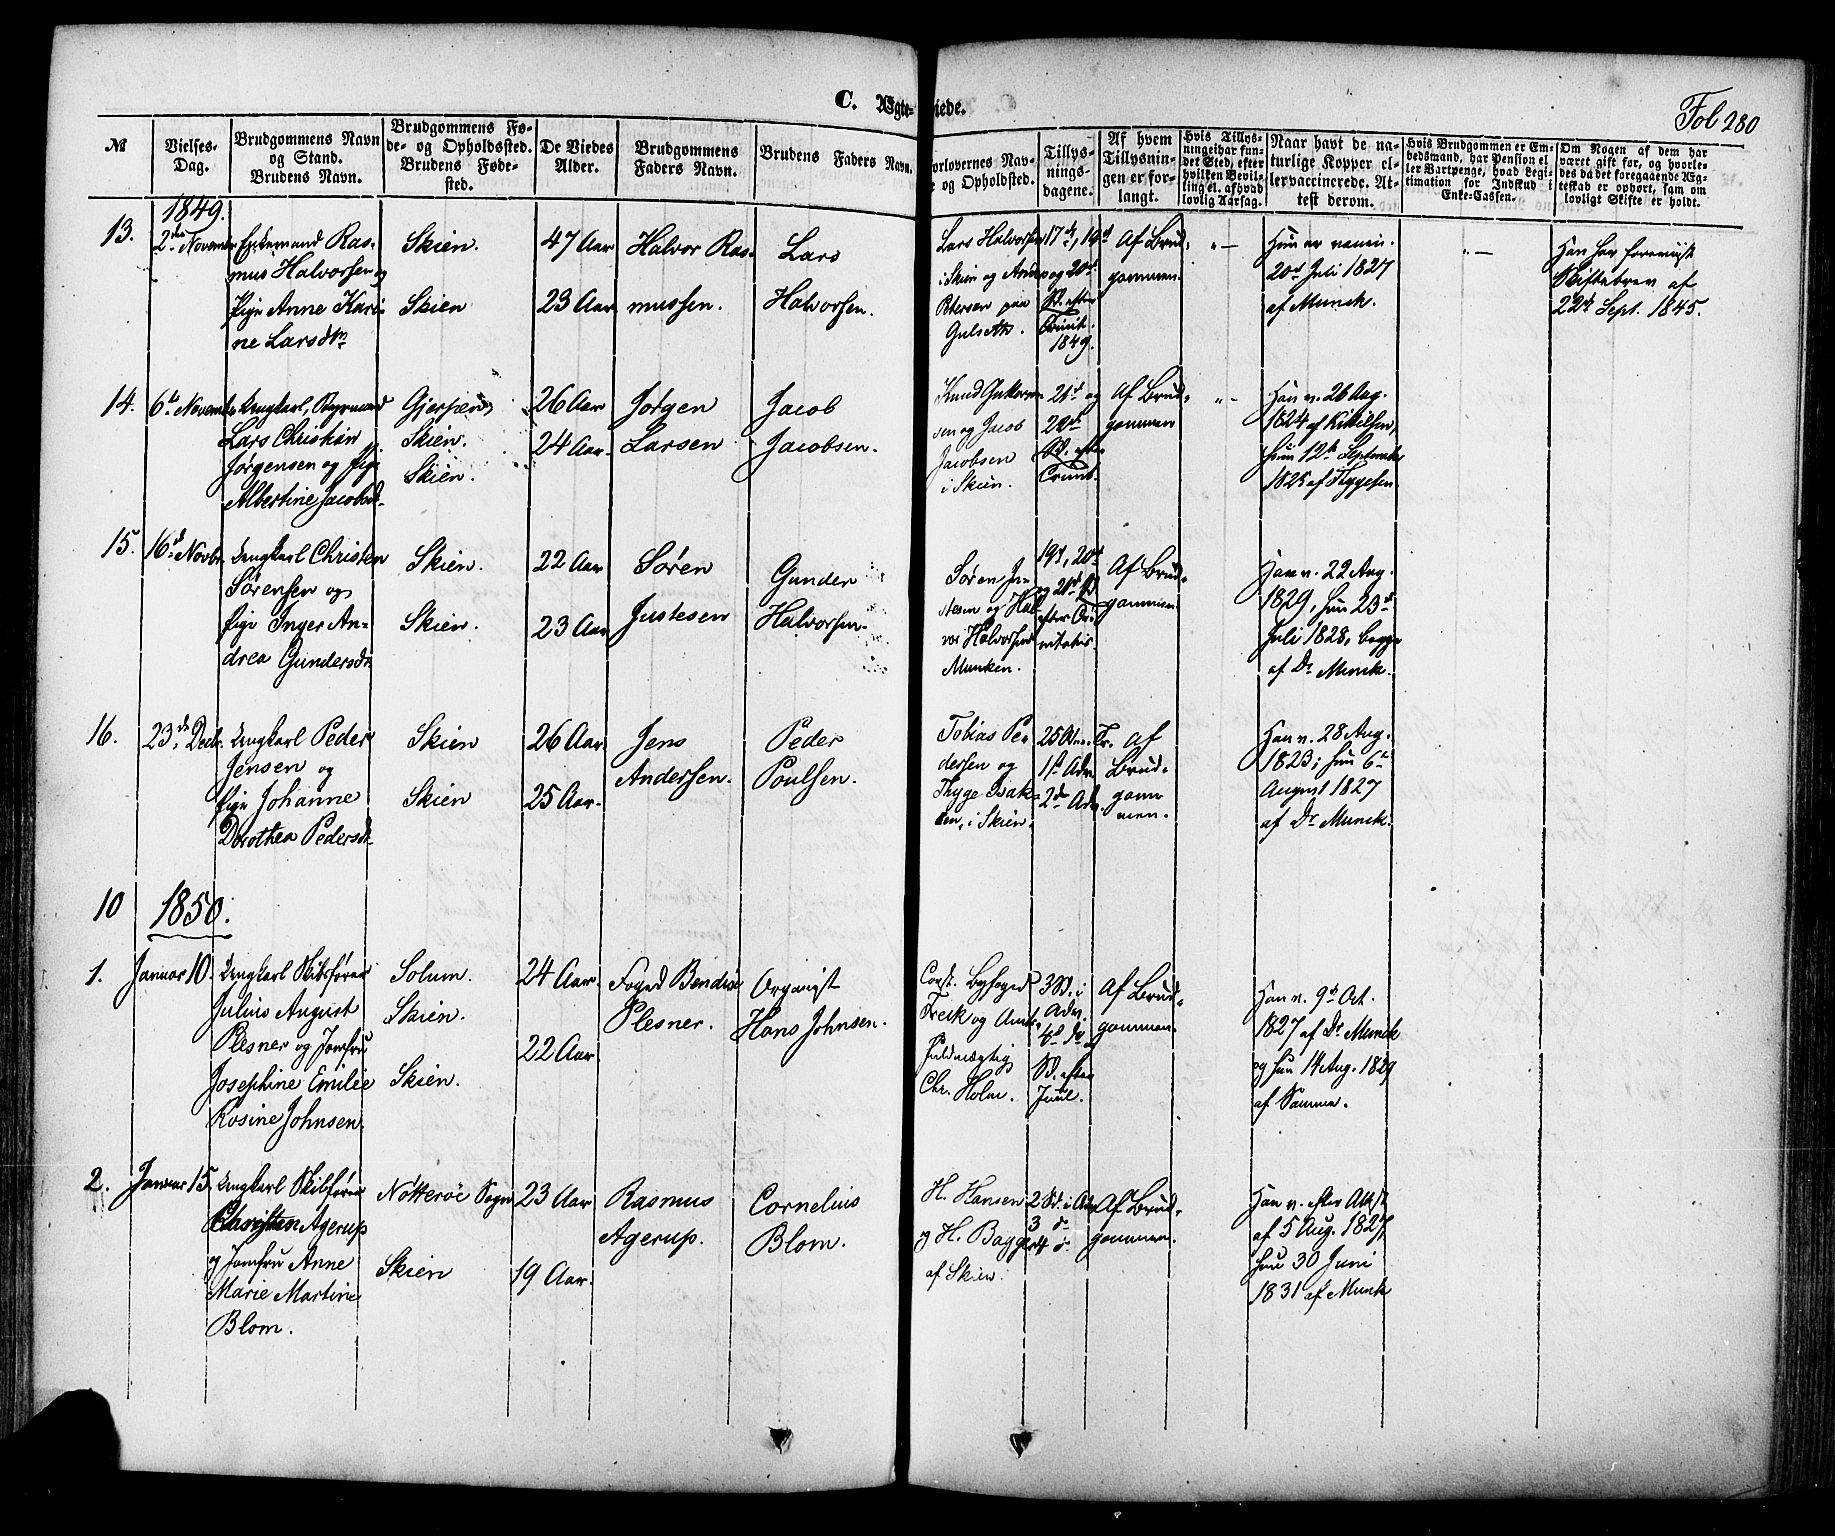 C. Ægteviede.
Fol 280
№
Vielses-
Dag.
Brudgommens Navn
og Stand.
Brudens Navn.
Brudgommens Fø-
de- og Opholdssted.
Brudens Føde-
sted.
De Viedes
Alder.
Brudgommens
Faders Navn.
Brudens Faders Navn.
orlovernes Nav-
e og Opholdsted.
Tillys-
nings-
dagene.
Af hvem
Tillysnin-
gen er for-
langt.
Hvis Tillys-
ningei har fun-
det Sted, efter
hvilken Bevil-
ling el. afhvad
lovlig Aarsag.
Naar havt de na-
turlige Kopper el-
ler vaccinerede. At-
test derom.
Hvis Brudgommen er Em-
bedsmand, har Pension el
ler Vartpenge, hvad Legi-
timation for Indskud i
Enke-Cassen.
Om Nogen af dem har
været gift før, og hvorle-
des da det foregaaende Æg-
teskab er ophørt, sam om
lovligt Skifte er holdt.
1849.
13.
2den November
Enkemand Ras-
mus Halvorsen og
Pige Anne Kari-
ne Larsdtr
Skien.
Skien
47 Aar
23 Aar
Halvor Ras-
mussen.
Lars
Halvorsen.
Lars Halvorsen
i Skien og Anders
Petersen paa
Gulseth.
17de, 19de
og 20de
S. efter
Trinit.
1849.
Af Brud-
gommen.
" —
Hun er vaccin.
20de Juli 1827
af Munck.
" —
Han har foreviist
Skiftebrev af
22de Sept. 1845.
14.
6te November
Ungkarl, Styrmand
Lars Christian
Jørgensen og Pige
Albertine Jacobsd.
Gjerpen
Skien.
Skien.
26 Aar
24 Aar.
Jørgen
Larsen
Jacob
Jacobsen.
Knud
sen og Jacob
Jacobsen
i Skien.
21de og
22de
S. efter
Trinit.
Af Brud-
gommen
" —
Han v. 26 Aug.
1824 af Kittilsen,
hun 12te September
1825 af Thygesen.
15.
16de Novbr.
Ungkarl Christen
Sørensen og
Pige Inger An-
drea Gundersdr.
Skien.
Skien.
22 Aar
23 Aar
Søren
Justesen
Gunder
Halvorsen.
Søren Ju-
stesen og Hal
vor Halvorsen
Munken.
19de, 20de
og 21de S
efter Tri-
nitatis.
Af Brud-
gommen
Han v. 22 Aug.
1829, hun 23de
Juli 1828, begge
af Dr Munck.
16.
23de Decbr.
Ungkarl Peder
Jensen og
Pige Johanne
Dorothea Pedersd.
Skien
Skien
26 Aar.
25 Aar.
Jens
Andersen.
Peder
Poulsen.
Tobias Pe
dersen og
Thyge Isak-
sen, i Skien.
25 Tr.
1ste Adv.
2den Adv.
af
Brud-
gom
men.
Han v. 28 Aug.
1823; hun 6te
August 1827
af Dr Munck.
10
1850.
1.
Januar 10.
Ungkarl Skibsfører
Julius August
Plesner og Jomfru
Josephine Emilie
Rosine Johnsen.
Solum.
Skien.
Skien.
24 Aar.
22 Aar.
Foged Bendix
Plesner.
Organist
Hans Johnsen.
Const. Byfoged
og Amts-
fuldmægtig
Chr. Holm.
3 S. i
Adv.
4de do
S. efter
Juul.
Af Brud-
gommen.
Han v. 9de Oct.
1827 af Dr Munck
og hun 14 Aug. 1829
af Samme.
2.
Januar 15.
Ungkarl Skibsfører
Christen Agerup
og Jomfru Anne
Marie Martine
Blom.
Nøtterøe Sogn
Skien
23 Aar
19 Aar.
Rasmus
Agerup.
Cornelius
Blom.
H. Hansen
og H. Bagger
af Skien.
2 S. i Adv.
3 do
4 d.
Af Brud-
gommen.
Han v. efter Attest
af 5 Aug. 1827,
hun 30 Juni
1831 af Munck